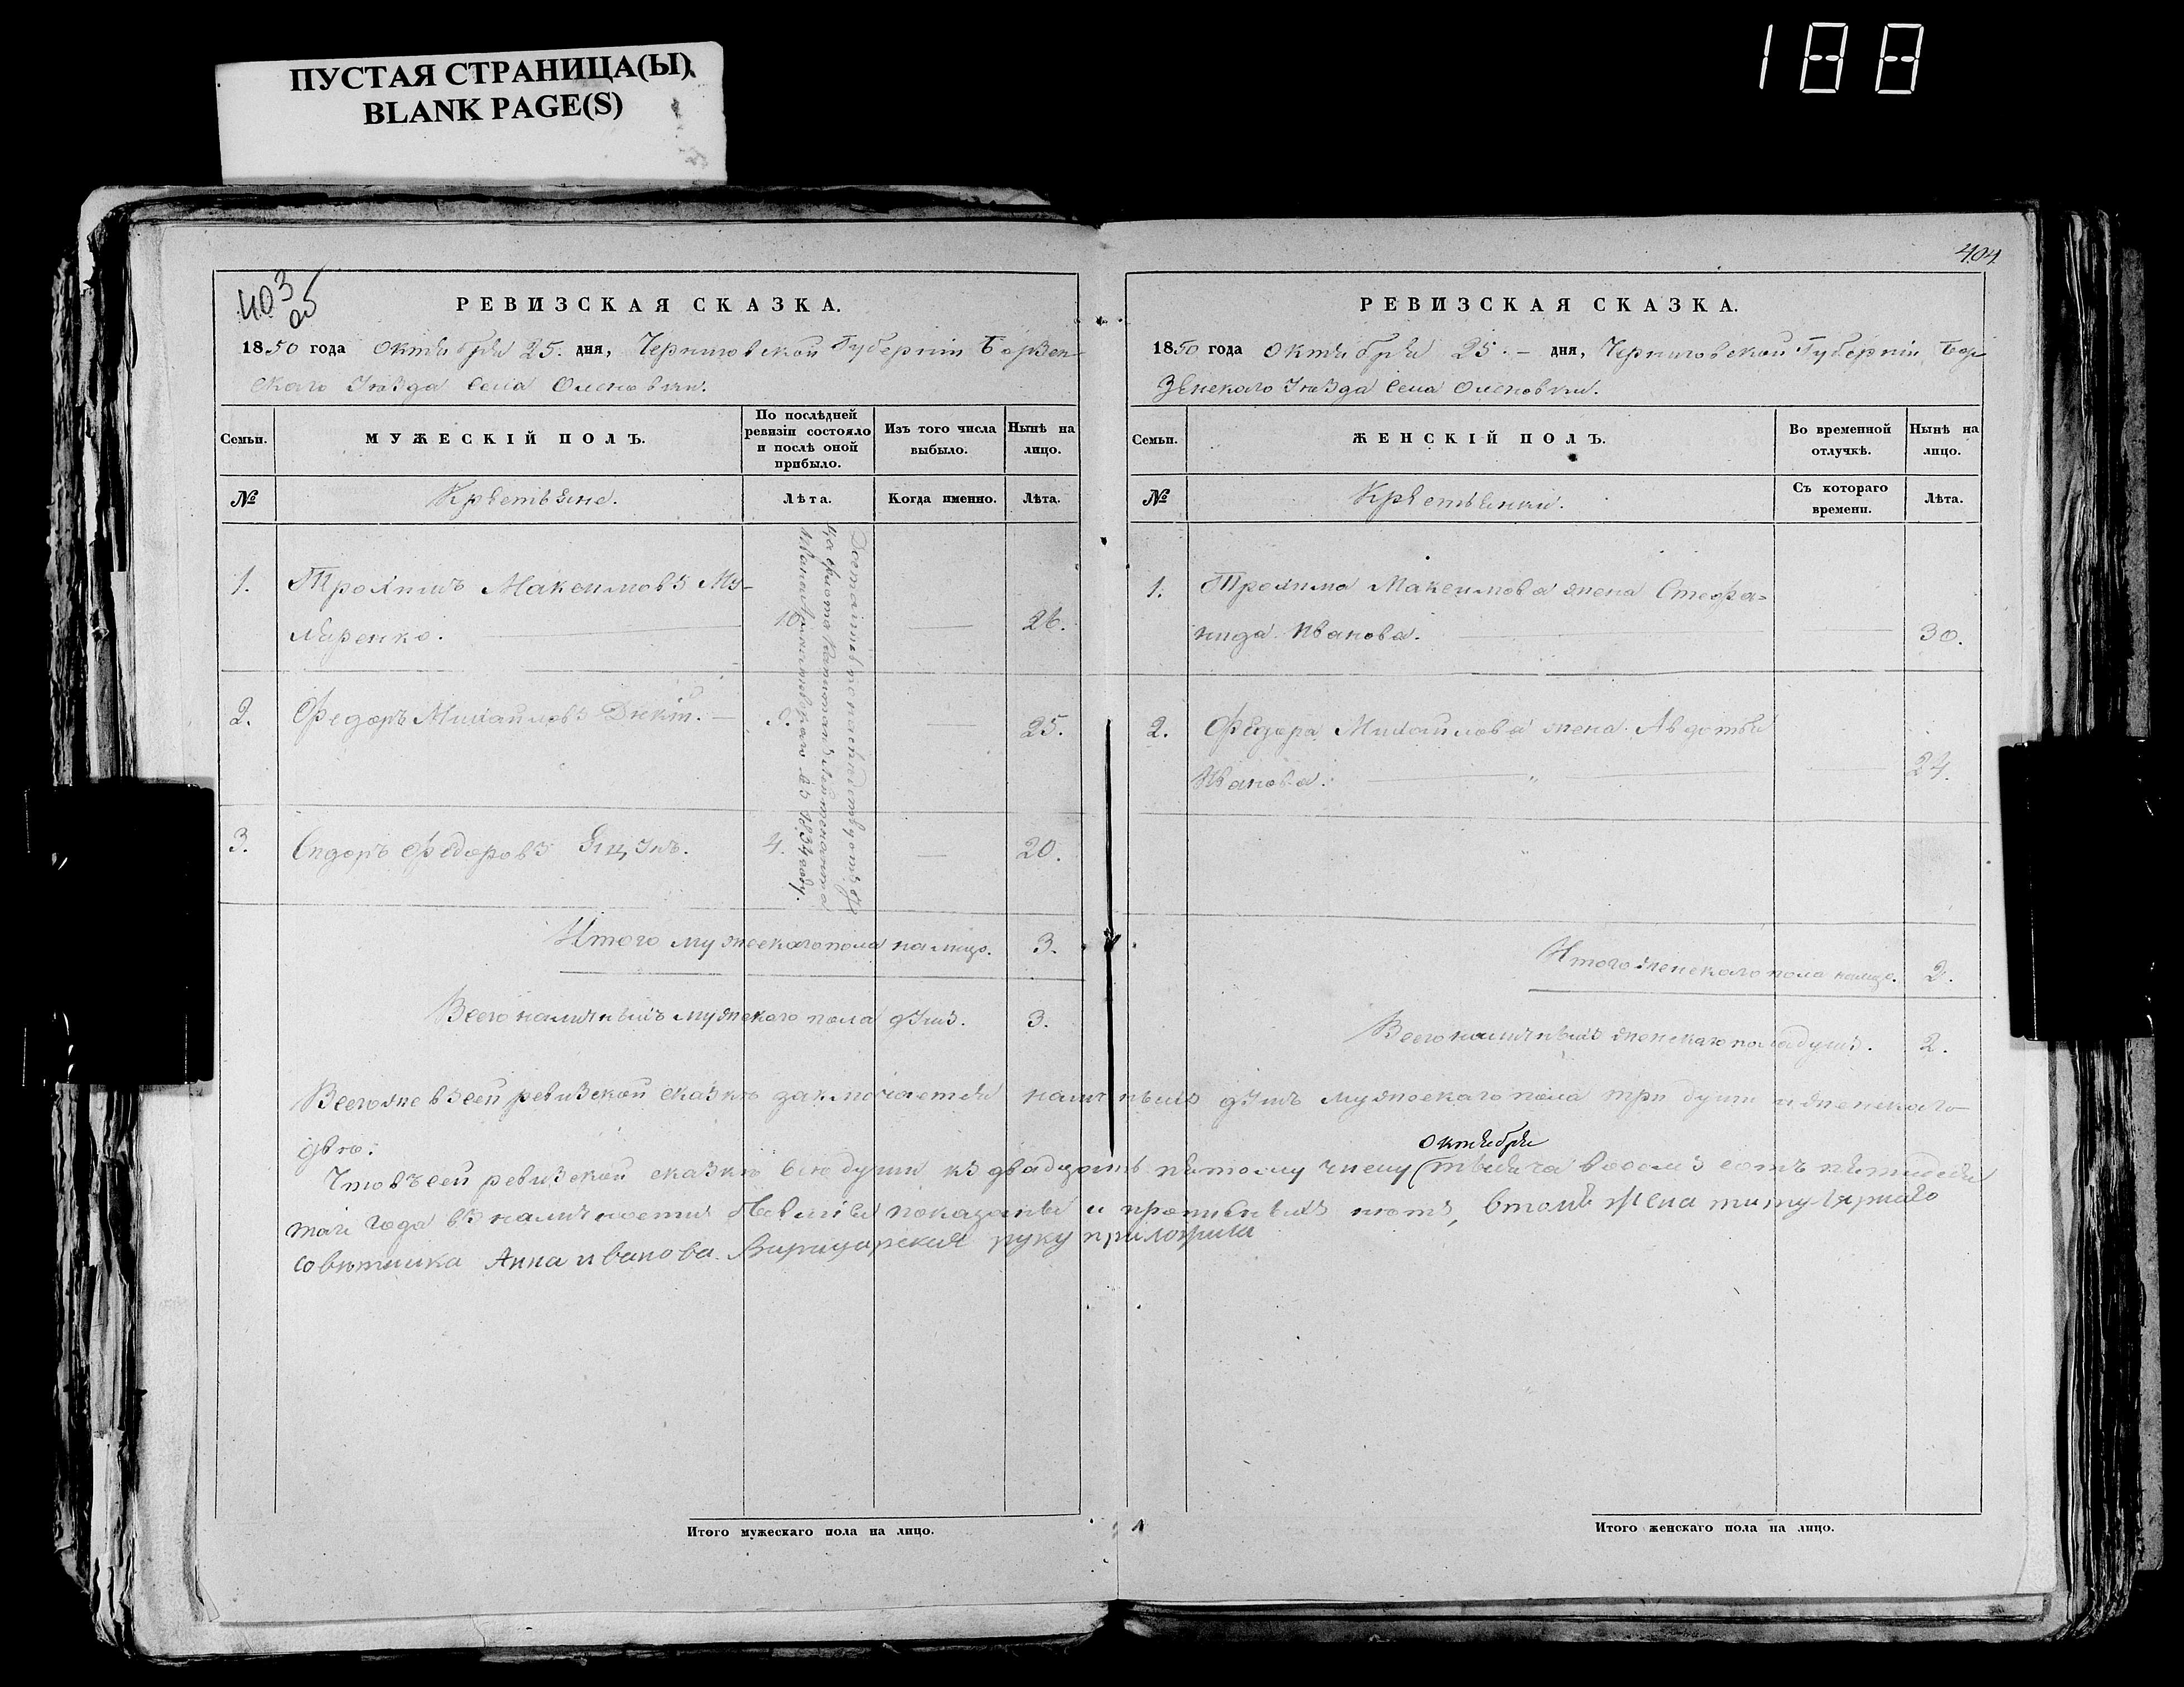 ПУСТАЯ СТРАНИЦА(Ы)
BLANK PAGE(S)
188
403
об
РЕВИЗСКАЯ СКАЗКА.
1850 года Октября 25. дня, Черниговской Губерніи Борзен-
скаго Уѣзда Села Оленовки.
Семьи.
МУЖЕСКІЙ ПОЛЪ.
По послѣдней ревизіи состояло и послѣ оной прибыло.
Изъ того числа выбыло.
Нынѣ на лицо.
№
Крестьяне.
Лѣта.
Когда именно.
Лѣта.
1. Трохимъ Максимовъ Му-
ляренко. 10. — 26.
2. Федоръ Михайловъ 25.
3. Сидоръ Федоровъ 4. — 20.
въ 1834 году.
Итого мужескаго пола на лицо. 3.
Всего наличныхъ мужескаго пола душъ. 3.
404
РЕВИЗСКАЯ СКАЗКА.
1850 года Октября 25.— дня, Черниговской Губерніи, Бор-
зенскаго Уѣзда Села Оленовки.
Семьи.
ЖЕНСКІЙ ПОЛЪ.
Во временной отлучкѣ.
Нынѣ на лицо.
№
Крестьянки.
Съ котораго времени.
Лѣта.
1. Трохима Максимова жена Стефа=
нида Иванова. 30.
2. Федора Михайлова жена Авдотья
Иванова. 24.
Итого женскаго пола налицо. 2.
Всего наличныхъ женскаго пола душъ. 2.
Всего же въ сей ревизской сказкѣ заключается наличныхъ душъ мужескаго пола три души и женскаго—
двѣ.
Октября
Что въ сей ревизской сказкѣ всѣ души къ двадцать пятому числу тысяча восемъ сотъ пятидеся
таго года въ наличности показаны и прописныхъ нѣтъ, втомъ жена титулярнаго
совѣтника Анна иванова руку приложила
Итого мужескаго пола на лицо.
Итого женскаго пола на лицо.